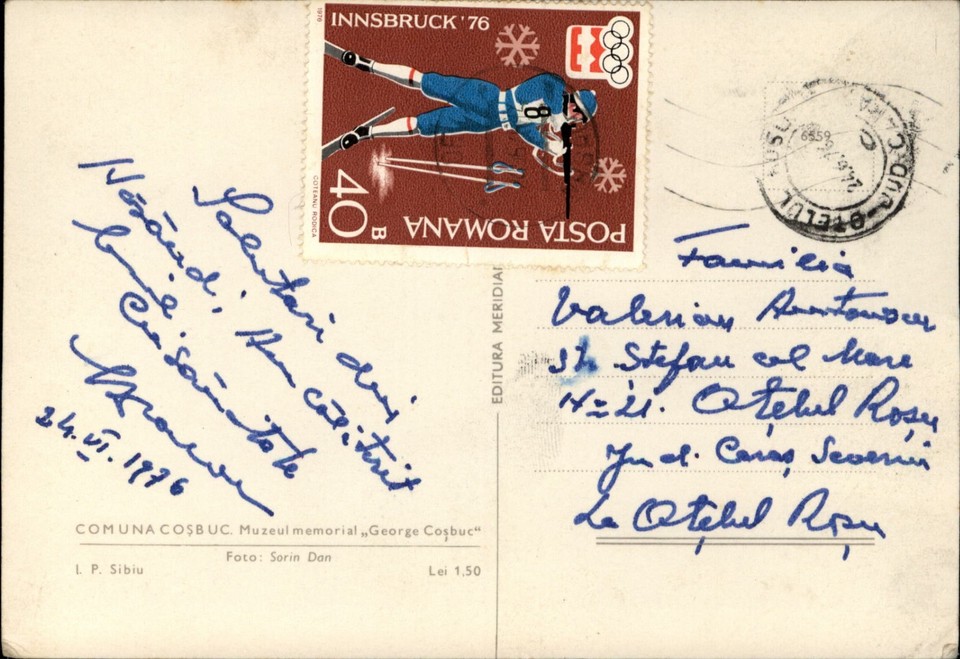 1976
INNSBRUCK '76
8
40 B
POSTA ROMANA
COTEANU RODICA
OTELUL ROSU
6559
Salutari din
Năsăud. Am călătorit
bine.
Cu sănătate
24.VI.1976
COMUNA COȘBUC. Muzeul memorial „George Coșbuc“
Foto: Sorin Dan
I. P. Sibiu
Lei 1,50
EDITURA MERIDIAN
Familia
Valerian Antonescu
Str Stefan cel Mare
nr 21. Oțelul Roșu
Jud. Caraș Severin
La Oțelul Roșu